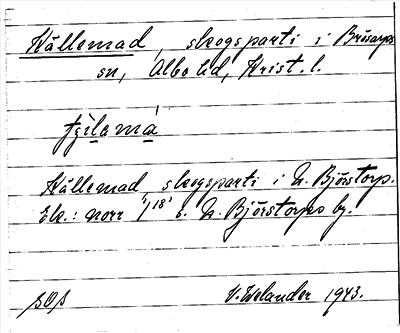 Källemad, skogsparti i Brösarps
sn, Albo hd, Krist. l.
Källemad, skogsparti i N. Björstorp.
Ek.: norr 1/18 s. N. Björstorps by.
1943.